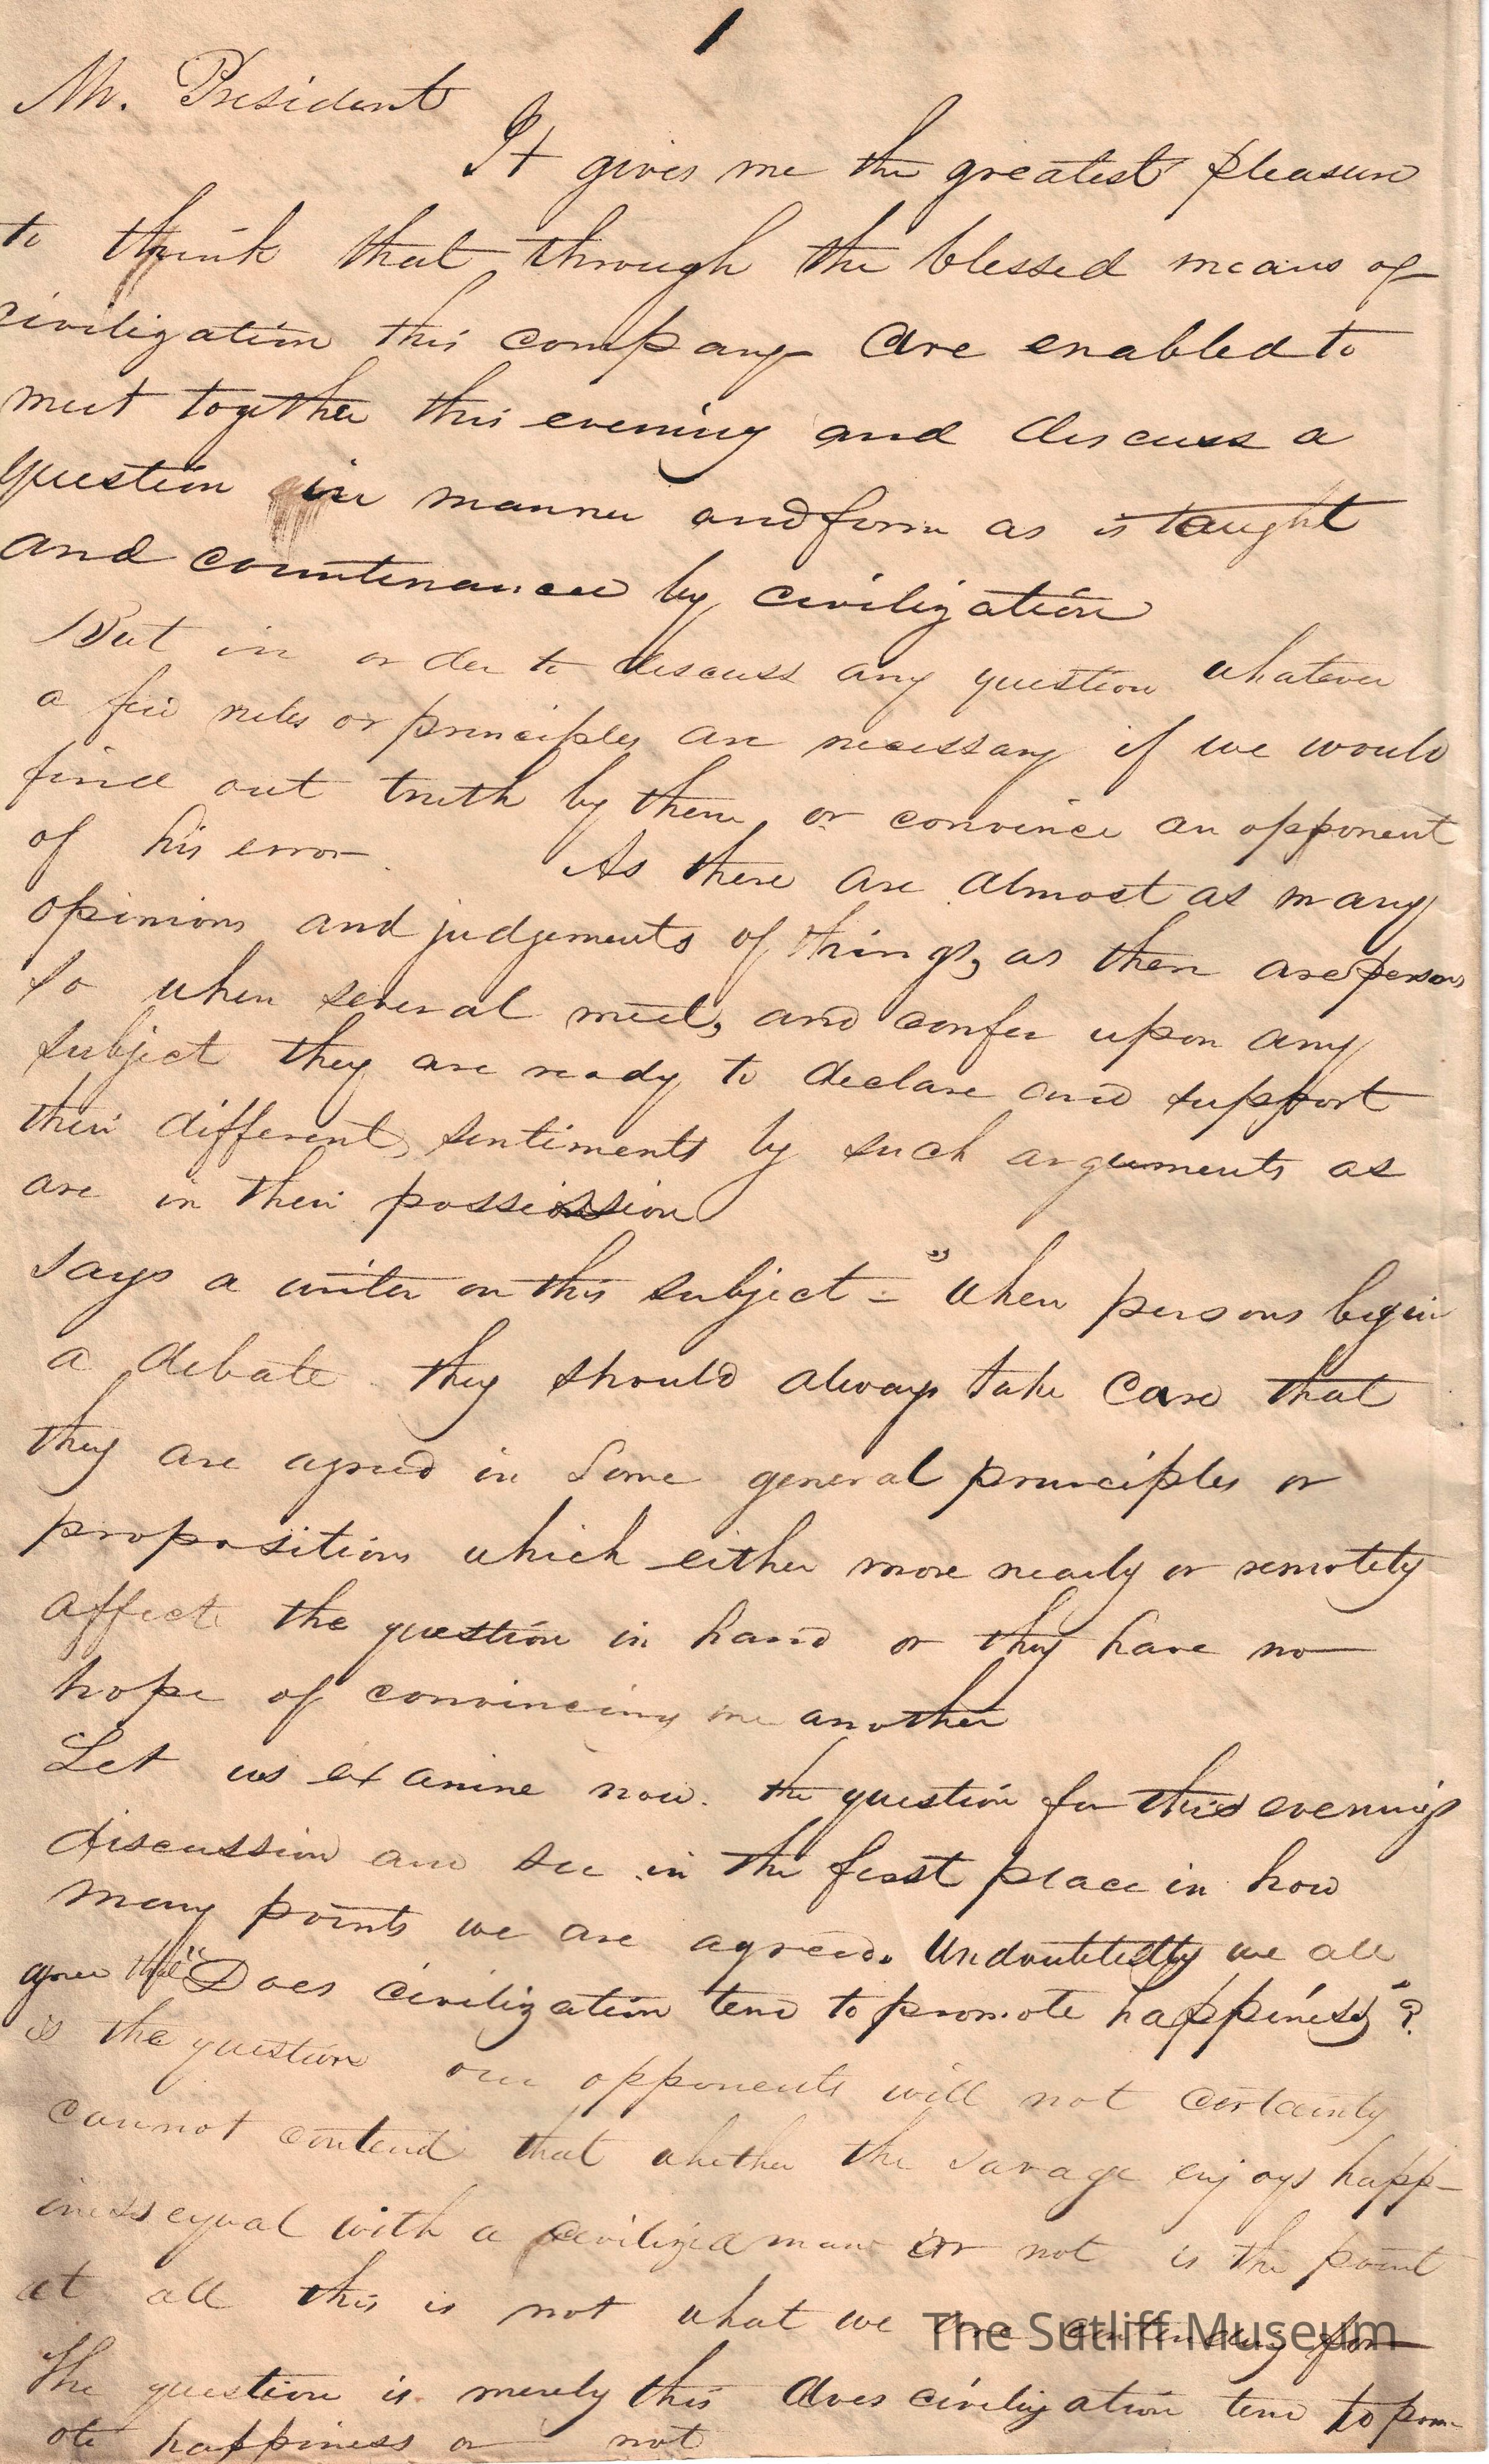 1
Mr. President
It gives me the greatest pleasure
to think that through the blessed means of
civilization this company are enabled to
meet together this evening and discuss a
question in manner and form as is taught
and countenanced by civilization
But in order to discuss any question whatever
a few rules or principles are necessary if we would
find out truth by them, or convince an opponent
of his error. As there are almost as many
opinions and judgements of things, as there are persons
so when several meet, and confer upon any
subject they are ready to declare and support
their different, sentiments by such arguments as
are in their possession
says a writer on this subject - "when persons begin
a debate they should always take care that
they are agreed in some general principles or
propositions which either more nearly or remotely
affect the question in hand or they have no
hope of convincing one another
Let us examine now. the question for this evenings
discussion and see in the first place in how
many points we are agreed. Undoubtedly we all
agree that "Does civilization tend to promote happiness"?
is the question our opponents will not certainly
cannot contend that whether the savage enjoys happ-
iness equal with a civilized man or not is the point
at all this is not what we are contending for
The question is merely this does civilization tend to prom-
ote happiness or not
The Sutliff Museum